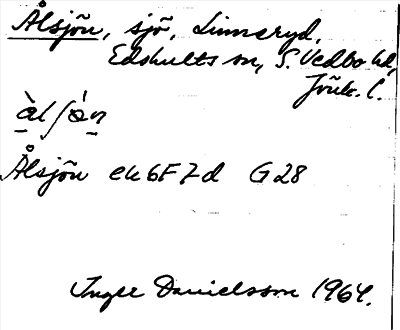 Ålsjön, sjö, Linneryd,
Edshults sn, S. Vedbo hd,
Jönk. l.
Ålsjön ek 6F7d G28
Inger Danielsson 1964.